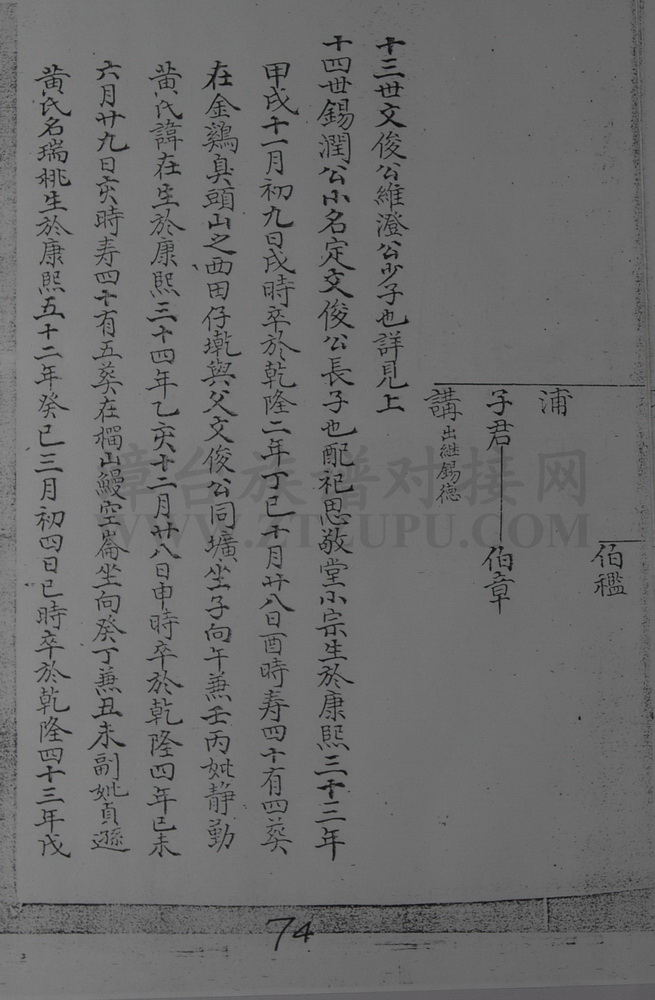 伯㰐
浦
子君 伯章
講 出繼錫德
十三世文俊公維澄公少子也詳見上
十四世錫潤公小名定文俊公長子也配祀思敬堂小宗生於康熙三十三年
甲戌十一月初九日戌時卒於乾隆二年丁巳十月廿八日酉時寿四十有四葵
在金鷄臭頭山之西田仔墘與父文俊公同壙坐子向午兼壬丙妣静勤
黄氏諱在生於康熙三十四年乙亥十二月廿八日申時卒於乾隆四年己未
六月廿九日亥時寿四十有五葵在榴山鰻空崙坐向癸丁兼丑未副妣貞遜
黄氏名瑞桃生於康熙五十二年癸巳三月初四日巳時卒於乾隆四十三年戊
漳台族谱对接网
WWW.ZTZUPU.COM
74